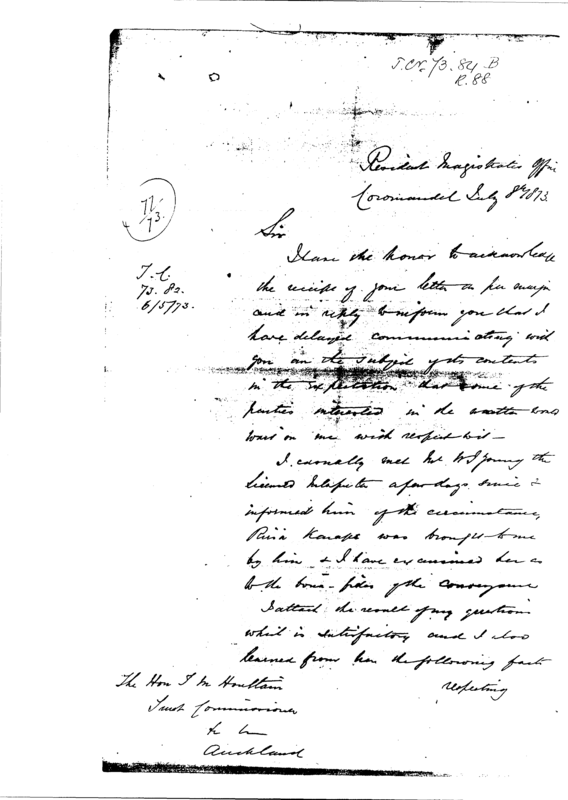 T.C. 73. 84 B
R. 88
Resident Magistrates Office
Coromandel July 8th 1873.
77/73.
Sir
T. C.
73. 82.
6/5/73.
I have the honor to acknowledge
the receipt of your letter as per margin
and in reply to inform you that I
have delayed communicating with
you on the subject of its contents
in the expectation that some of the
parties interested in the matter would
wait on me with respect to it –
I casually met Mr W J Young the
Licensed Interpreter a few days since &
informed him of the circumstance,
Karape was brought to me
by him & I have examined her as
to the bona-fides of the conveyance
I attach the result of my questions
which is satisfactory and I also
learned from her the following facts
respecting
The Hon
Trust Commissioner
&c &c
Auckland